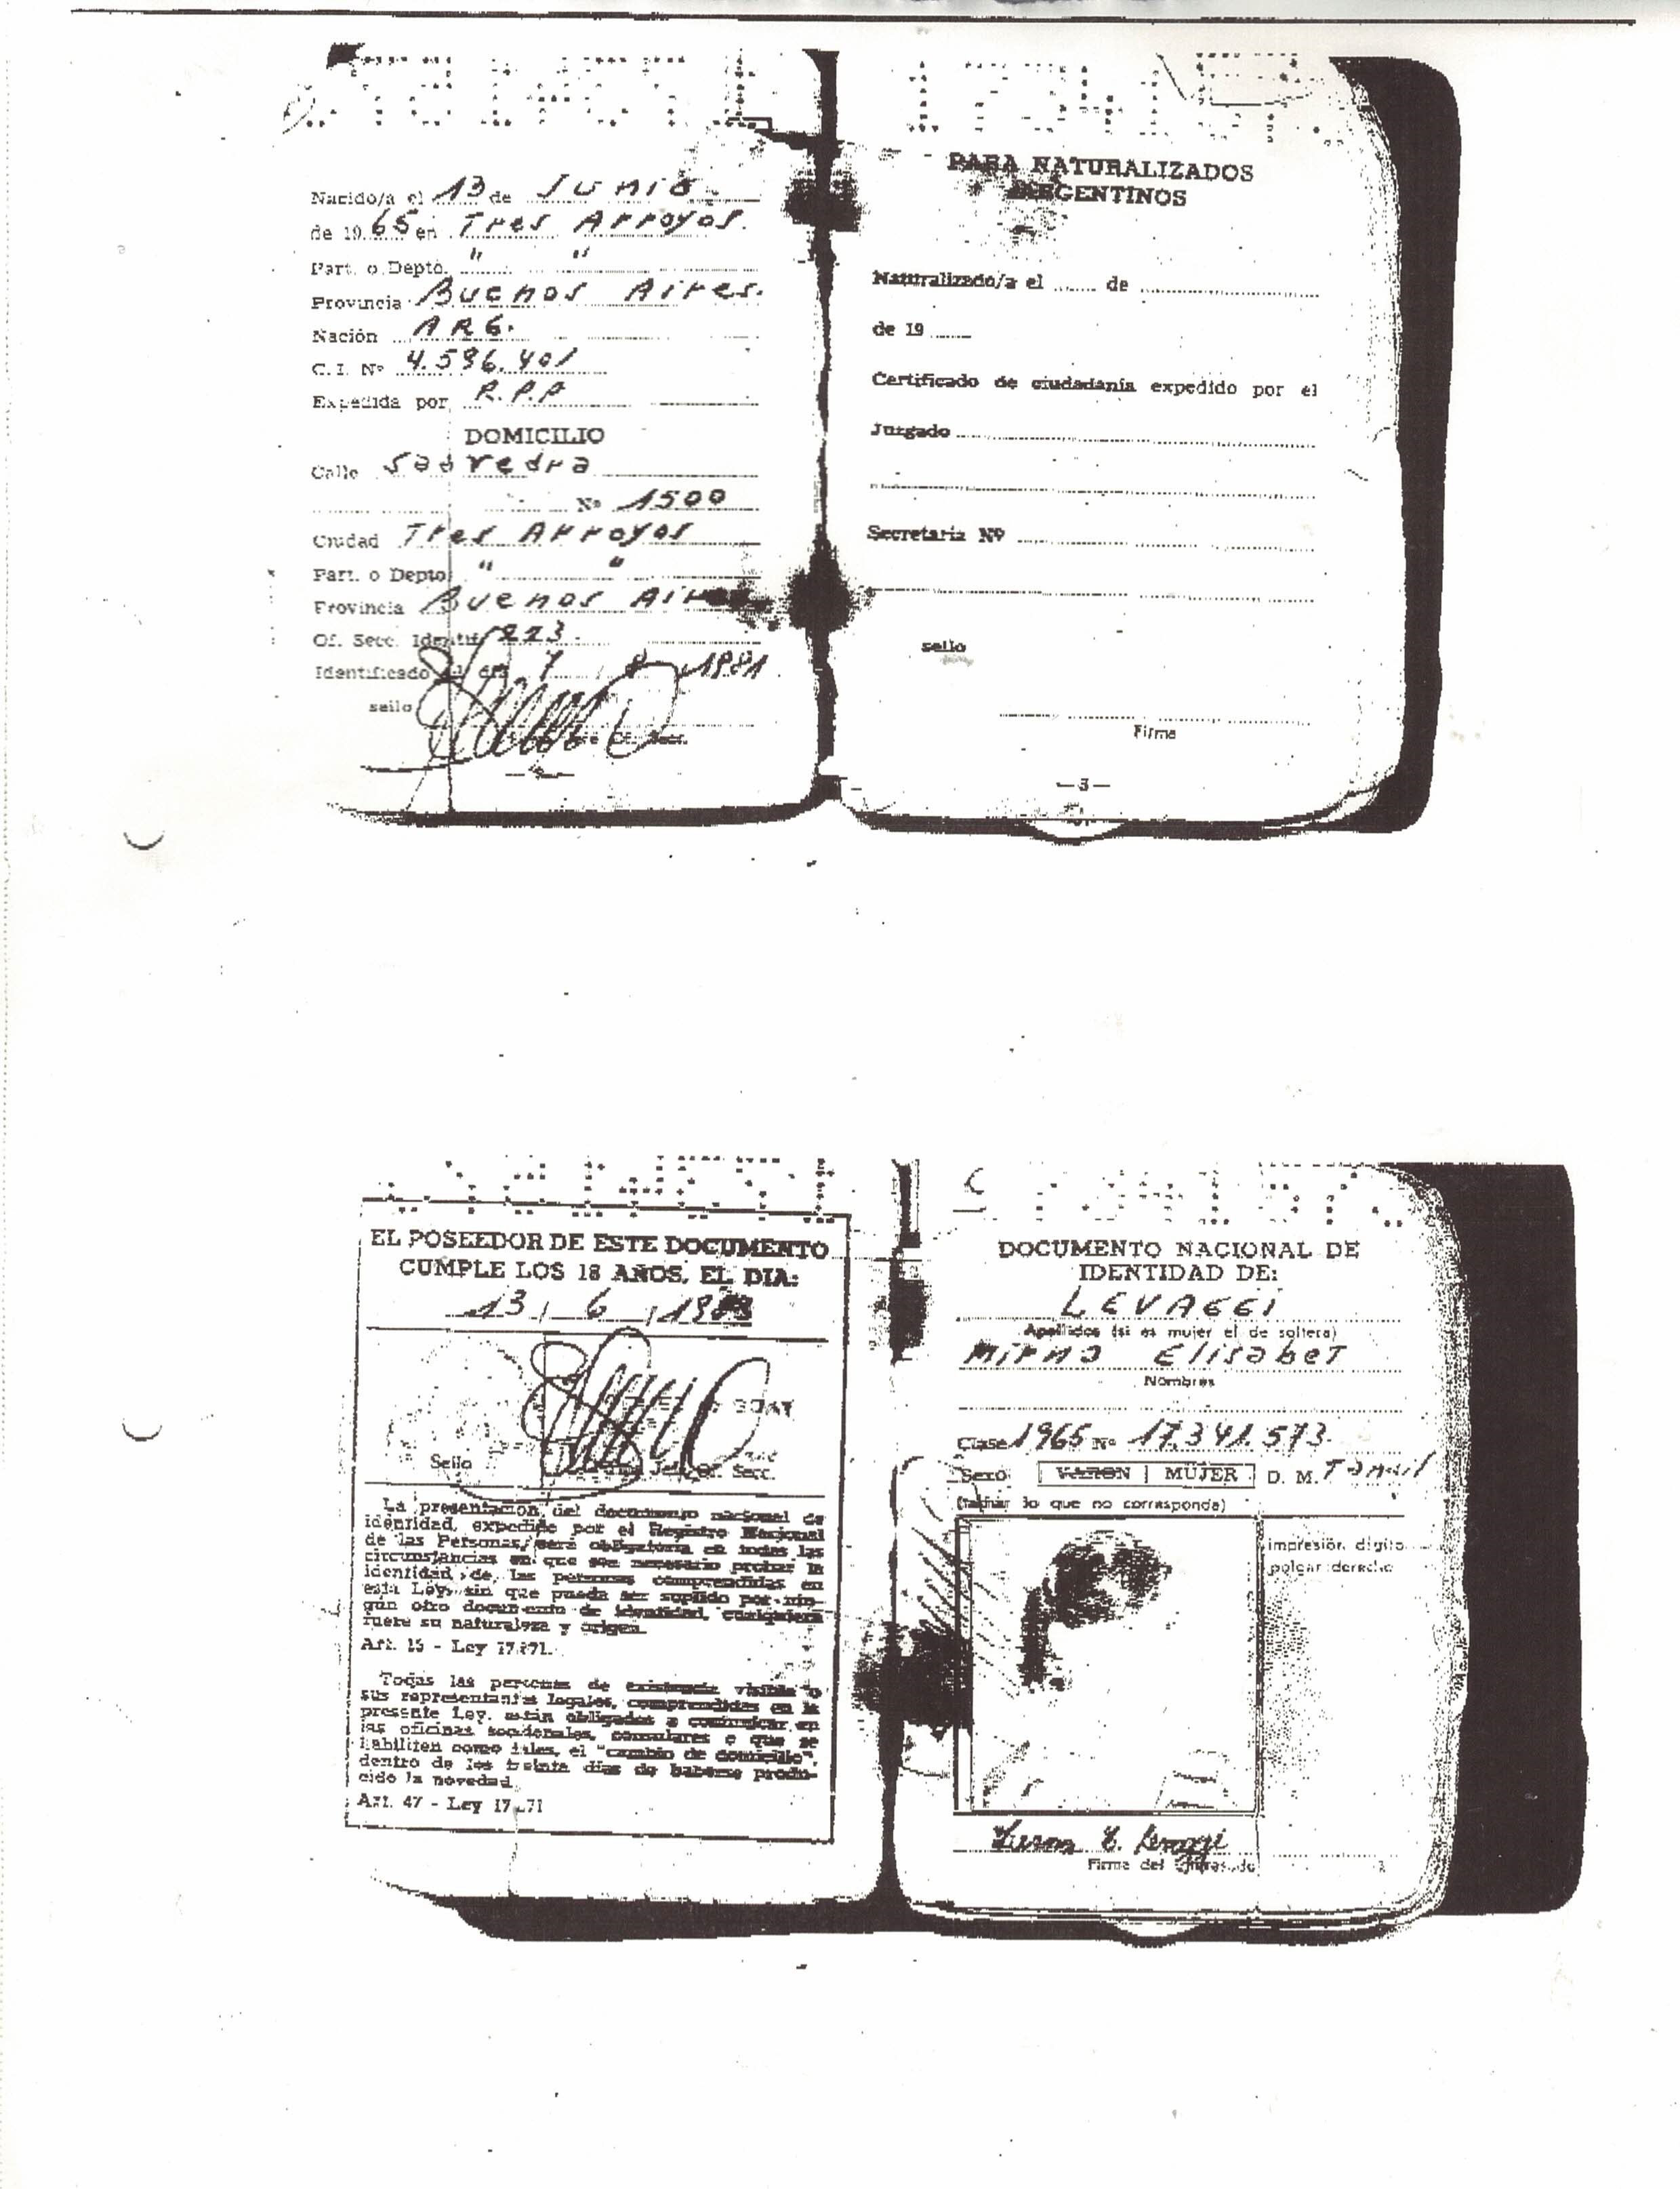 Nacido/a el 13 de Junio
de 19 65 en Tres Arroyos.
Part. o Depto. " "
Provincia Buenos Aires.
Nación ARG.
C.I. Nº 4.596.401
Expedida por R.P.P
DOMICILIO
Calle Saavedra
Nº 1500
Ciudad Tres Arroyos
Part. o Depto. " "
Provincia Buenos Aires
Of. Secc. Identif. 223.
Identificado el día 7 8 1981.
sello
Of. Secc.
PARA NATURALIZADOS
ARGENTINOS
Naturalizado/a el ...... de
de 19 ......
Certificado de ciudadanía expedido por el
Juzgado
Secretaría Nº
sello
Firma
—3—
EL POSEEDOR DE ESTE DOCUMENTO
CUMPLE LOS 18 AÑOS, EL DIA:
13 / 6 / 1983
Sello
Jefe Of. Secc.
La presentación del documento nacional de
identidad, expedido por el Registro Nacional
de las Personas, será obligatoria en todas las
circunstancias en que sea necesario probar la
identidad de las personas comprendidas en
esta Ley, sin que pueda ser suplido por nin-
gún otro documento de identidad, cualquiera
fuere su naturaleza y origen.
Art. 13 - Ley 17.671.
Todas las personas de existencia visible o
sus representantes legales, comprendidas en la
presente Ley, están obligadas a comunicar en
las oficinas seccionales, consulares o que se
habiliten como tales, el "cambio de domicilio",
dentro de los treinta días de haberse produ-
cido la novedad.
Art. 47 - Ley 17.671
DOCUMENTO NACIONAL DE
IDENTIDAD DE:
LEVAGGI
Apellidos (si es mujer el de soltera)
Mirna Elisabet
Nombres
Clase 1965 Nº 17.341.573.
Sexo VARON | MUJER D. M. Tandil
(tachar lo que no corresponda)
impresión dígito
pulgar derecho
Mirna E. Levaggi
Firma del Interesado